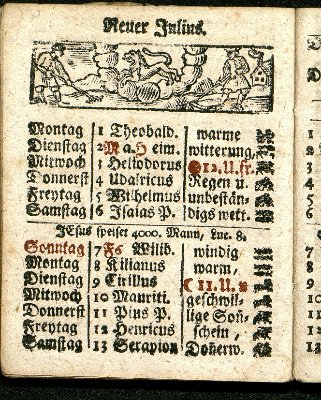 Neuer Julius.
Montag 1 Theobald. warme
Dienstag 2 M a. H eim. witterung,
Mitwoch 3 Heliodorus 12. U. fr.
Donnerst 4 Udalricus Regen u.
Freytag 5 Wilhelmus unbestän-
Samstag 6 Isaias P. digs wett.
JEsus speiset 4000. Mann, Luc. 8.
Sonntag 7 F6 Wilib. windig
Montag 8 Kilianus warm,
Dienstag 9 Cirillus 11. U. n
Mitwoch 10 Mauriti. geschwil-
Donnerst 11 Pius P. lige Soñ-
Freytag 12 Henricus schein,
Samstag 13 Serapion Doñerw.